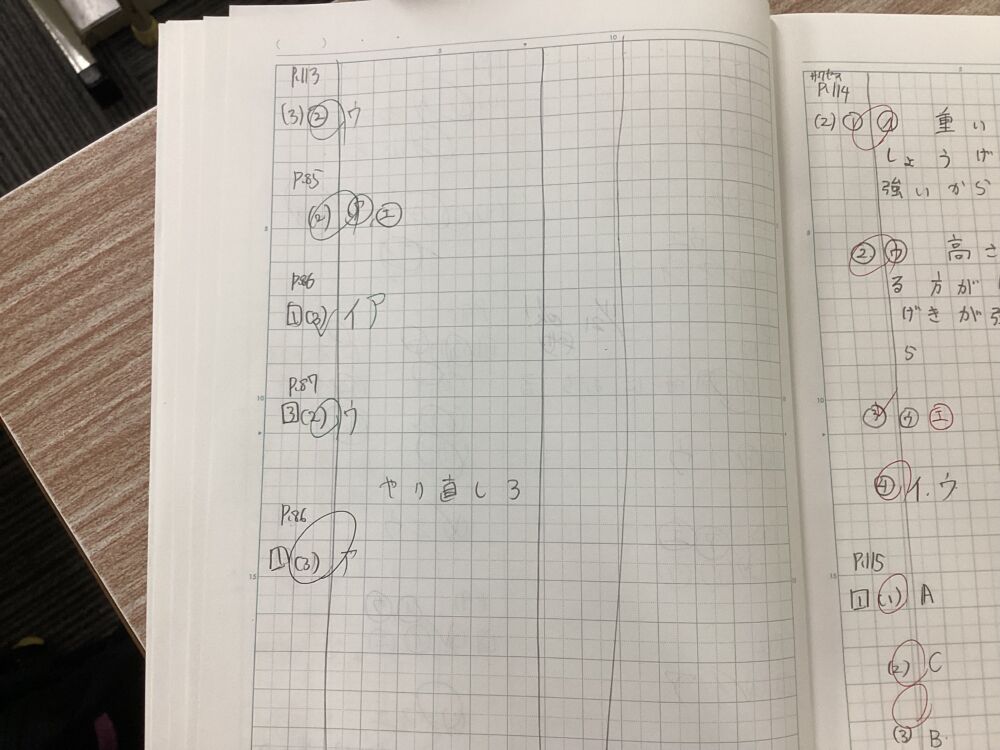 P.113
(3) ② ウ
P.85
(2) ア エ
P.86
1 (3) イ ア
P.87
3 (2) ウ
やり直し3
P.86
1 (3) ア
P.114
(2) ① イ 重い
しょうげ
強いから
② ウ 高さ
る方が
げきが強
ら
③ ウ エ
④ イ.ウ
P.115
1 (1) A
(2) C
(3) B